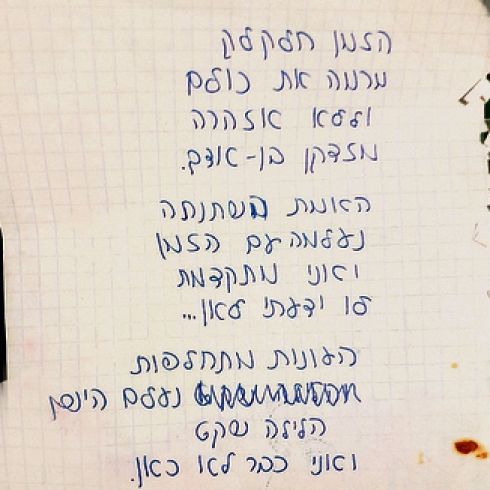 הזמן חלקלק
מרמה את כולם
וללא אזהרה
מזדקן בן-אדם.
האמת השתנתה
נעלמה עם הזמן
ואני מתקדמת
לו ידעתי לאן...
העונות מתחלפות
נעלם הישן
הלילה שקט
ואני כבר לא כאן.